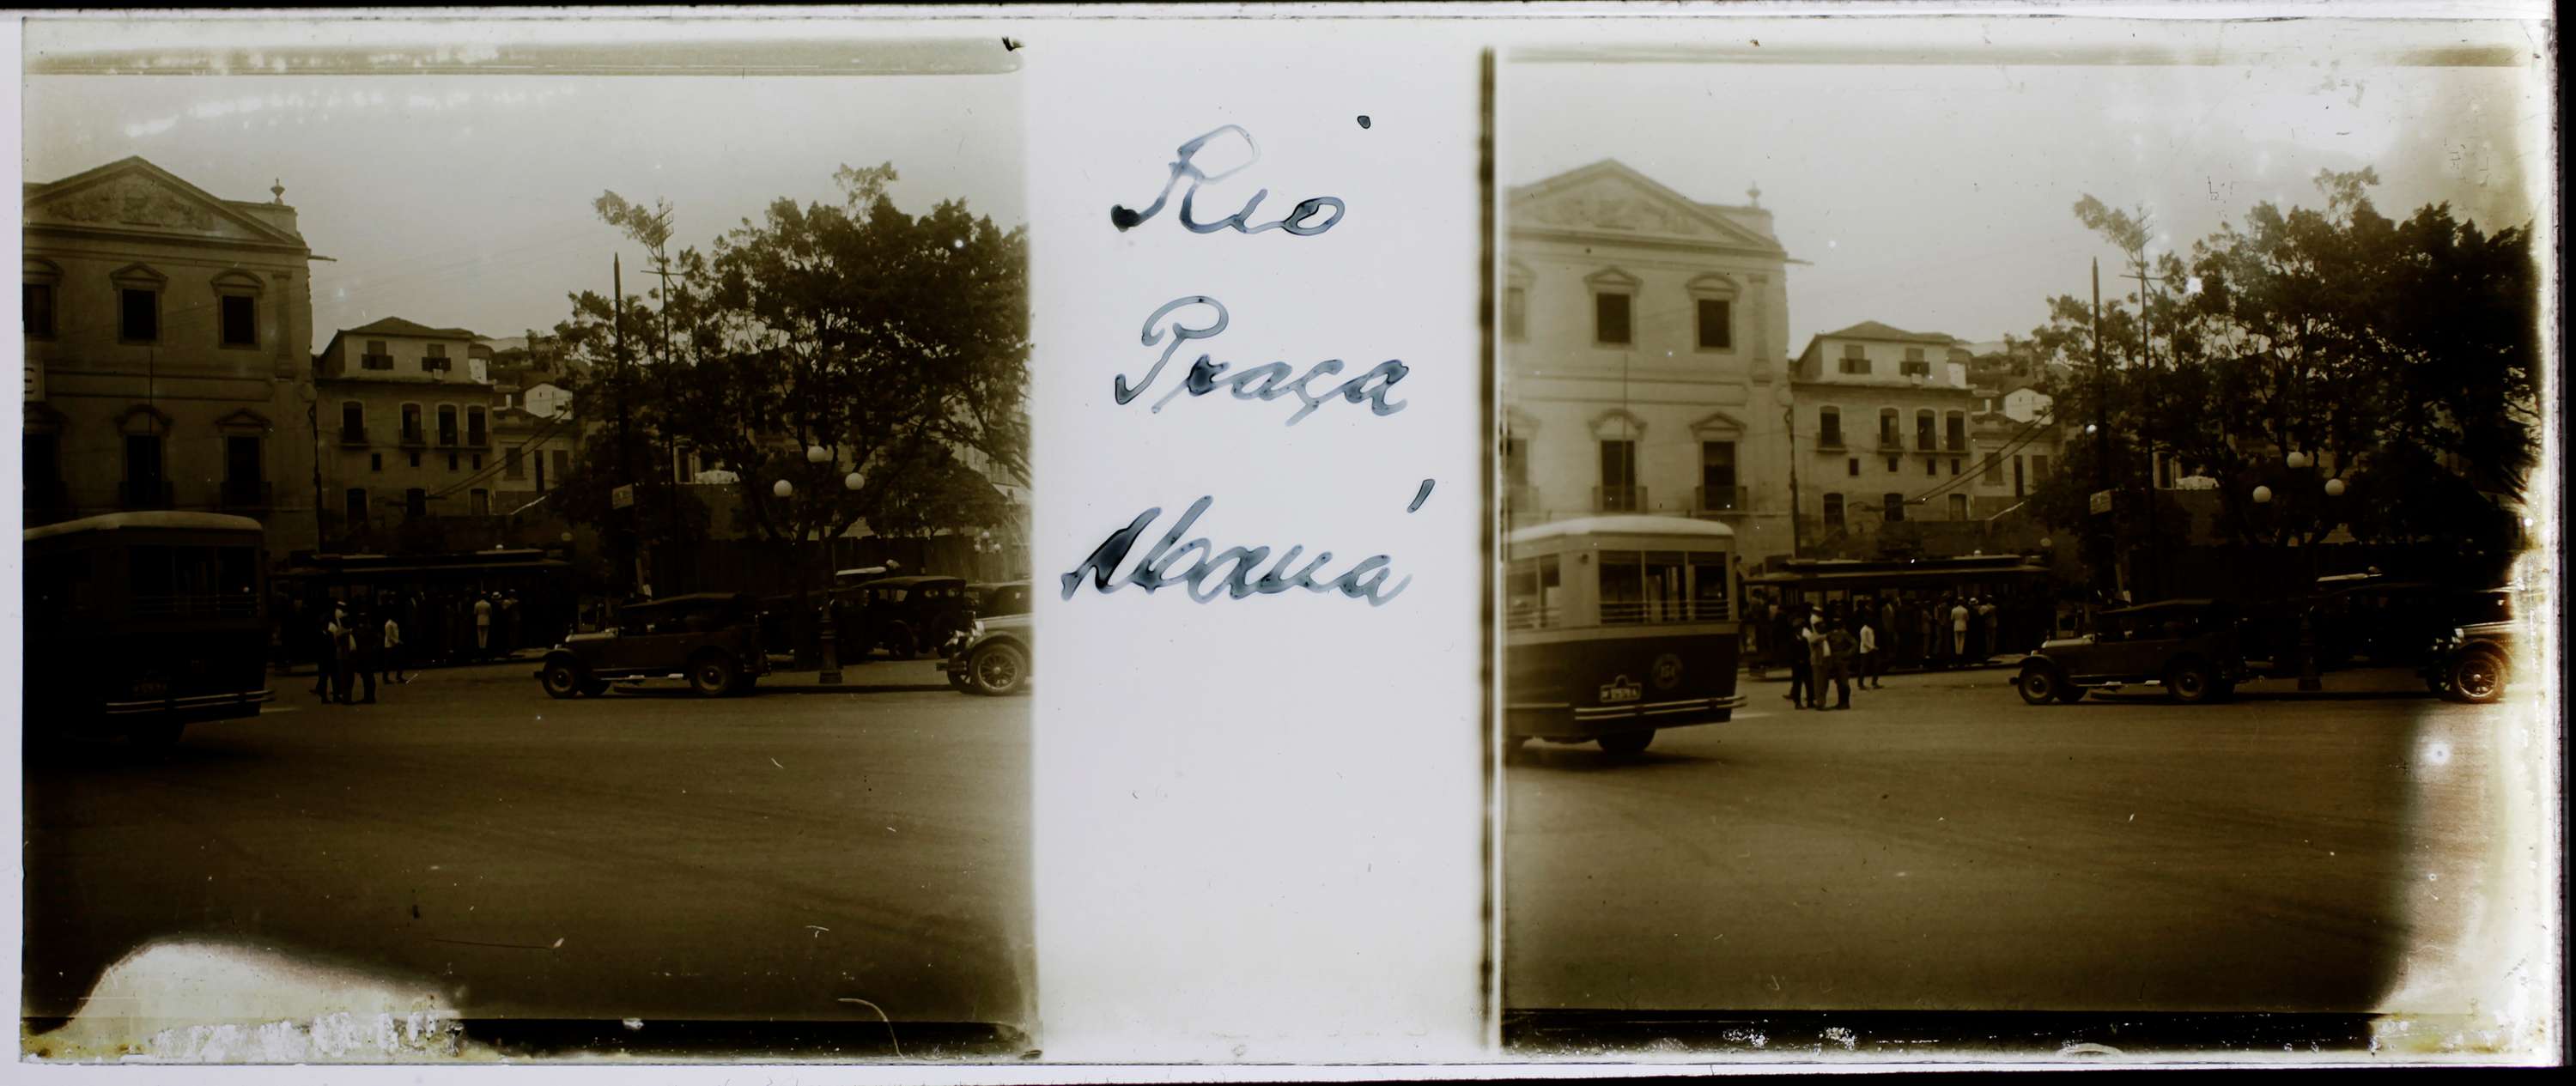 Rio
Praça
Mauá